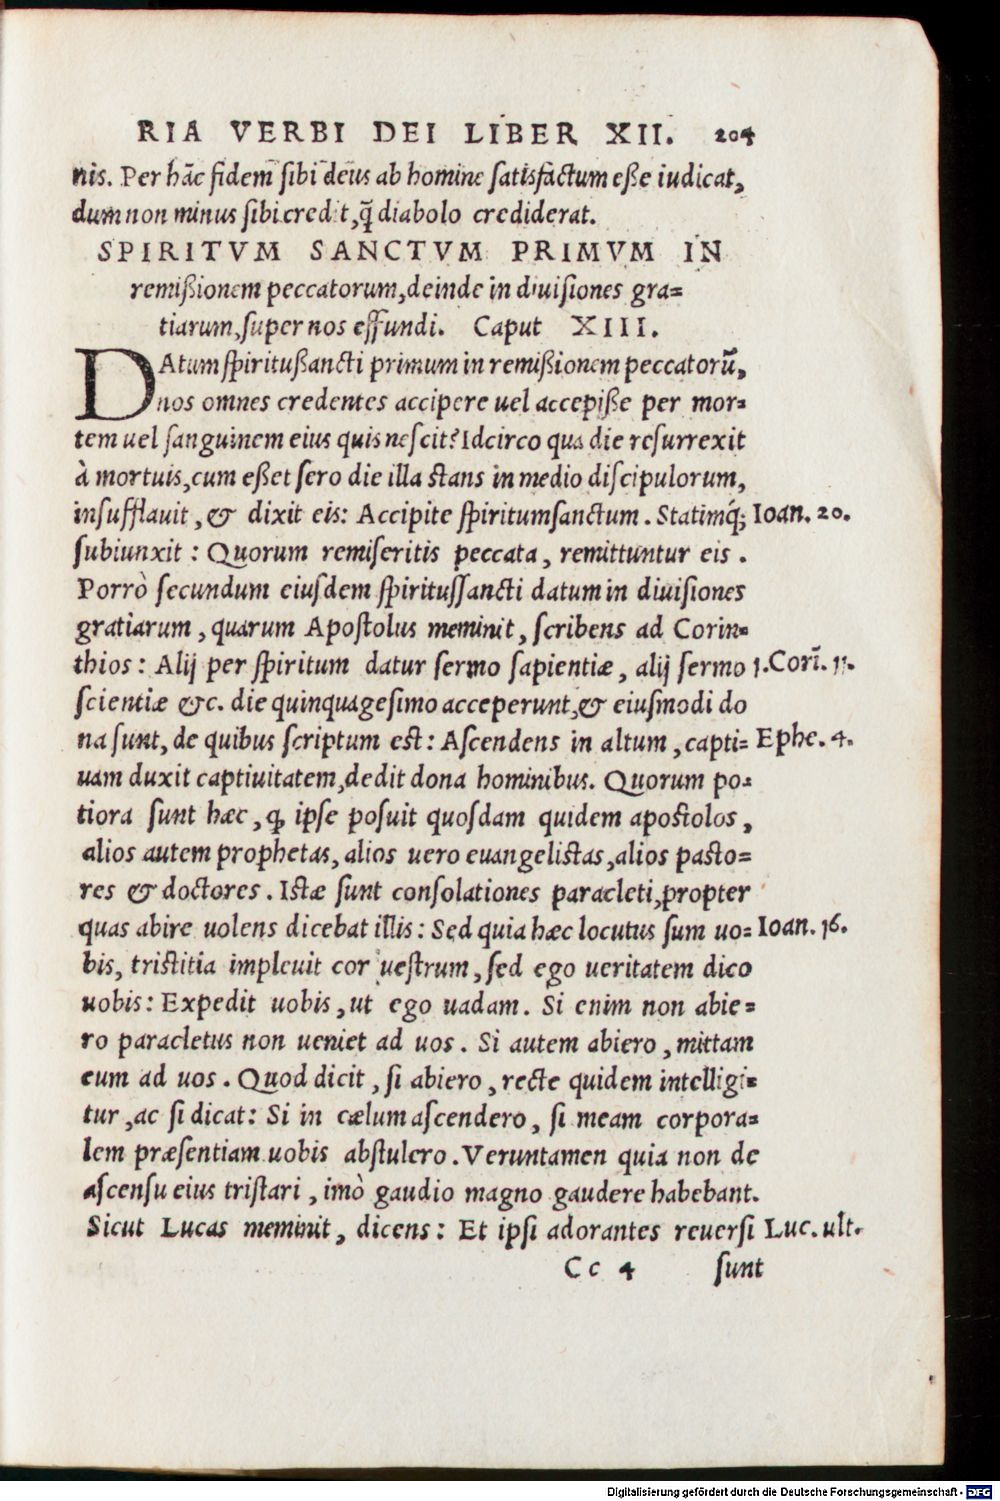 RIA VERBI DEI LIBER XII. 204
nis. Per hāc fidem sibi deus ab homine satisfactum eße iudicat,
dum non minus sibi credit, q̃ diabolo crediderat.
SPIRITVM SANCTVM PRIMVM IN
remißionem peccatorum, deinde in diuisiones gra=
tiarum, super nos effundi. Caput XIII.
DAtum spiritußancti primum in remißionem peccatorū,
nos omnes credentes accipere uel accepiße per mor=
tem uel sanguinem eius quis nescit? Idcirco qua die resurrexit
à mortuis, cum eßet sero die illa stans in medio discipulorum,
insufflauit, & dixit eis: Accipite spiritumsanctum. Statimq́; Ioan. 20.
subiunxit: Quorum remiseritis peccata, remittuntur eis.
Porrò secundum eiusdem spiritussancti datum in diuisiones
gratiarum, quarum Apostolus meminit, scribens ad Corin=
thios: Alij per spiritum datur sermo sapientiæ, alij sermo 1. Corī. 11.
scientiæ &c. die quinquagesimo acceperunt, & eiusmodi do
na sunt, de quibus scriptum est: Ascendens in altum, capti= Ephe. 4.
uam duxit captiuitatem, dedit dona hominibus. Quorum po=
tiora sunt hæc, ꝙ ipse posuit quosdam quidem apostolos,
alios autem prophetas, alios uero euangelistas, alios pasto=
res & doctores. Istæ sunt consolationes paracleti, propter
quas abire uolens dicebat illis: Sed quia hæc locutus sum uo= Ioan. 16.
bis, tristitia impleuit cor uestrum, sed ego ueritatem dico
uobis: Expedit uobis, ut ego uadam. Si enim non abie=
ro paracletus non ueniet ad uos. Si autem abiero, mittam
eum ad uos. Quod dicit, si abiero, recte quidem intelligi=
tur, ac si dicat: Si in cælum ascendero, si meam corpora=
lem præsentiam uobis abstulero. Veruntamen quia non de
ascensu eius tristari, imò gaudio magno gaudere habebant.
Sicut Lucas meminit, dicens: Et ipsi adorantes reuersi Luc. ult.
Cc 4 sunt
Digitalisierung gefördert durch die Deutsche Forschungsgemeinschaft - DFG